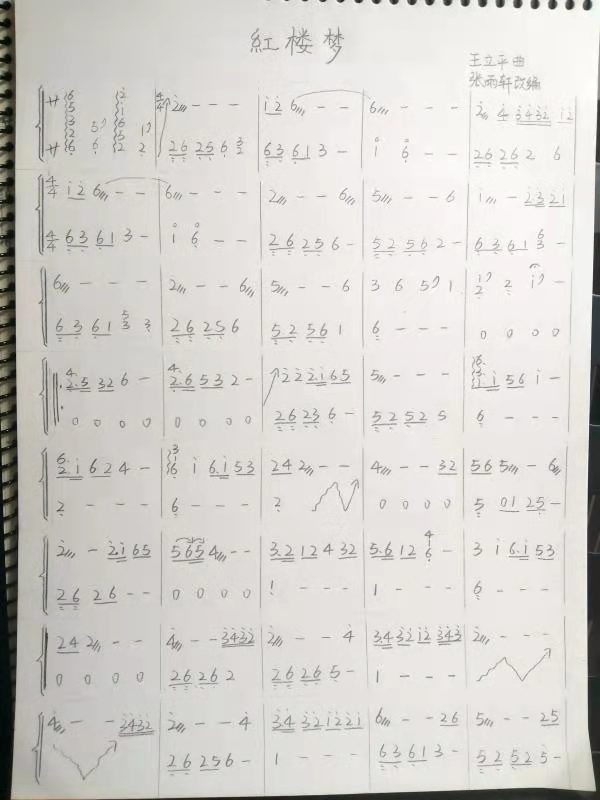 紅楼梦
王立平曲
张雨轩改编
2 - - -
1 2 6 - - -
6 - - -
2 4 3432 12
26 256 3 2
63 61 3 -
1 6 - -
26 26 2 6
4/4 1 2 6 - -
6 - - -
2 - - 6
5 - - 6
1 - - 2321
4/4 63 61 3 -
1 6 - -
26 256 -
52 56 2 -
63 61 6 3 -
6 - - -
2 - - 6
5 - - 6
3 6 5 1
2 2 1 -
63 61 5 3 3
26 256
52 56 1
6 - - -
0 0 0 0
2.5 32 6 -
2.6 53 2 -
2 2 2.1 65
5 - - -
1 56 1 -
0 0 0 0
0 0 0 0
26 23 6 -
52 52 5
6 - - -
2.1 62 4 -
6 1 6.1 53
24 2 - -
4 - - 32
56 5 - 6
2 - - -
6 - - -
2
0 0 0 0
5 01 25 -
2 - 2.1 65
565 4 - -
3.2 12 4 32
5.6 12 6 -
3 1 6.1 53
26 26 - -
0 0 0 0
1 - - -
1 - - -
6 - - -
24 2 - -
4 - - 3432
2 - - 4
3.4 32 12 343
2 - - -
0 0 0 0
26 26 2
26 26 5 -
1 - - -
4 - - 3432
2 - - 4
3.4 32 12 21
6 - - 26
5 - - 25
26 256 -
1 - - -
63 61 3 -
52 52 5 -